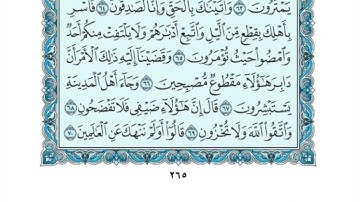 يَمْتَرُونَ ٦٣ وَأَتَيْنَٰكَ بِٱلْحَقِّ وَإِنَّا لَصَٰدِقُونَ ٦٤ فَأَسْرِ
بِأَهْلِكَ بِقِطْعٍ مِّنَ ٱلَّيْلِ وَٱتَّبِعْ أَدْبَٰرَهُمْ وَلَا يَلْتَفِتْ مِنكُمْ أَحَدٌ
وَٱمْضُوا۟ حَيْثُ تُؤْمَرُونَ ٦٥ وَقَضَيْنَآ إِلَيْهِ ذَٰلِكَ ٱلْأَمْرَ أَنَّ
دَابِرَ هَٰٓؤُلَآءِ مَقْطُوعٌ مُّصْبِحِينَ ٦٦ وَجَآءَ أَهْلُ ٱلْمَدِينَةِ
يَسْتَبْشِرُونَ ٦٧ قَالَ إِنَّ هَٰٓؤُلَآءِ ضَيْفِى فَلَا تَفْضَحُونِ ٦٨
وَٱتَّقُوا۟ ٱللَّهَ وَلَا تُخْزُونِ ٦٩ قَالُوٓا۟ أَوَلَمْ نَنْهَكَ عَنِ ٱلْعَٰلَمِينَ ٧٠
٢٦٥